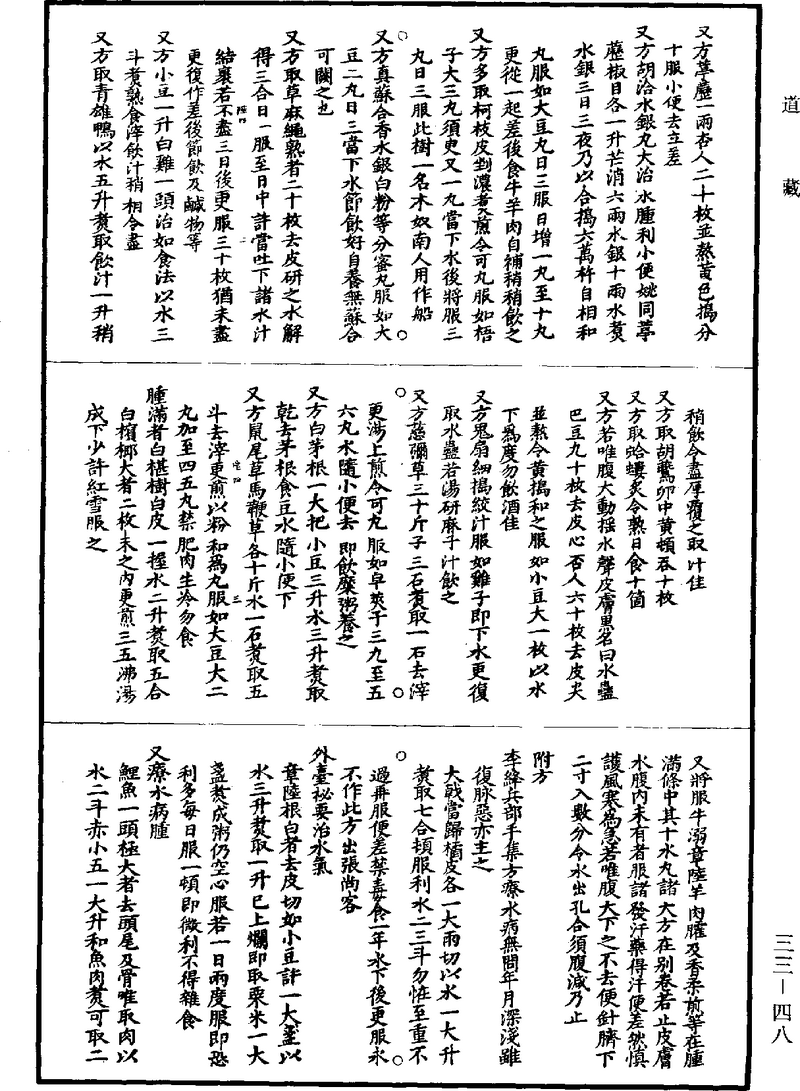 道藏
又方葶藶一兩杏人二十枚並熬黃色搗分
十服小便去立差
又方胡洽水銀丸大治水腫利小便姚同葶
藶椒目各一升芒消六兩水銀十兩水煑
水銀三日三夜乃以合搗六萬杵自相和
丸服如大豆丸日三服日增一丸至十丸
更從一起差後食牛羊肉自補稍稍飲之
又方多取柯枝皮剉濃煑煎令可丸服如梧
子大三丸須臾又一丸當下水後將服三
丸日三服此樹一名木奴南人用作船
又方真蘇合香水銀白粉等分蜜丸服如大
豆二丸日三當下水節飲好自養無蘇合
可闕之也
又方取草麻繩熟者二十枚去皮研之水解
得三合日一服至日中許當吐下諸水汁
結裹若不盡三日後更服三十枚猶未盡
更復作差後節飲及鹹物等
又方小豆一升白雞一頭治如食法以水三
斗煑熟食滓飲汁稍稍令盡
又方取青雄鴨以水五升煑取飲汁一升稍
稍飲令盡厚覆之取汁佳
又方取胡鷰卵中黃頓吞十枚
又方取蛤螻炙令熟日食十箇
又方若唯腹大動搖水聲皮膚黑名曰水蠱
巴豆九十枚去皮心杏人六十枚去皮尖
並熬令黃搗和之服如小豆大一枚以水
下爲度勿飲酒佳
又方鬼扇細搗絞汁服如雞子即下水更復
取水蠱若湯研麻子汁飲之
又方慈彌草三十斤子三石煑取一石去滓
更湯上煎令可丸服如皁莢子三丸至五
六丸水隨小便去即飲糜粥養之
又方白茅根一大把小豆三升水三升煑取
乾去茅根食豆水隨小便下
又方鼠尾草馬鞭草各十斤水一石煑取五
斗去滓更煎以粉和爲丸服如大豆大二
丸加至四五丸禁肥肉生冷勿食
腫滿者白椹樹白皮一握水二升煑取五合
白檳榔大者二枚末之內更煎三五沸湯
成下少許紅雪服之
又將服牛溺章陸羊肉臛及香柔煎等在腫
滿條中其十水丸諸大方在别卷若止皮膚
水腹內未有者服諸發汗藥得汗便差然慎
護風寒爲急若唯腹大下之不去便針臍下
二寸入數分令水出孔合須腹減乃止
附方
李絳兵部手集方療水病無問年月深淺雖
復脉惡亦主之
大戟當歸橘皮各一大兩切以水一大升
煑取七合頓服利水二三斗勿怪至重不
過再服便差禁毒食一年水下後更服永
不作此方出張尚客
外臺祕要治水氣
章陸根白者去皮切如小豆許一大盞以
水三升煑取一升已上爛即取粟米一大
盞煑成粥仍空心服若一日兩度服即恐
利多每日服一頓即微利不得雜食
又療水病腫
鯉魚一頭極大者去頭尾及骨唯取肉以
水二斗赤小豆一大升和魚肉煑可取二
三三-四八